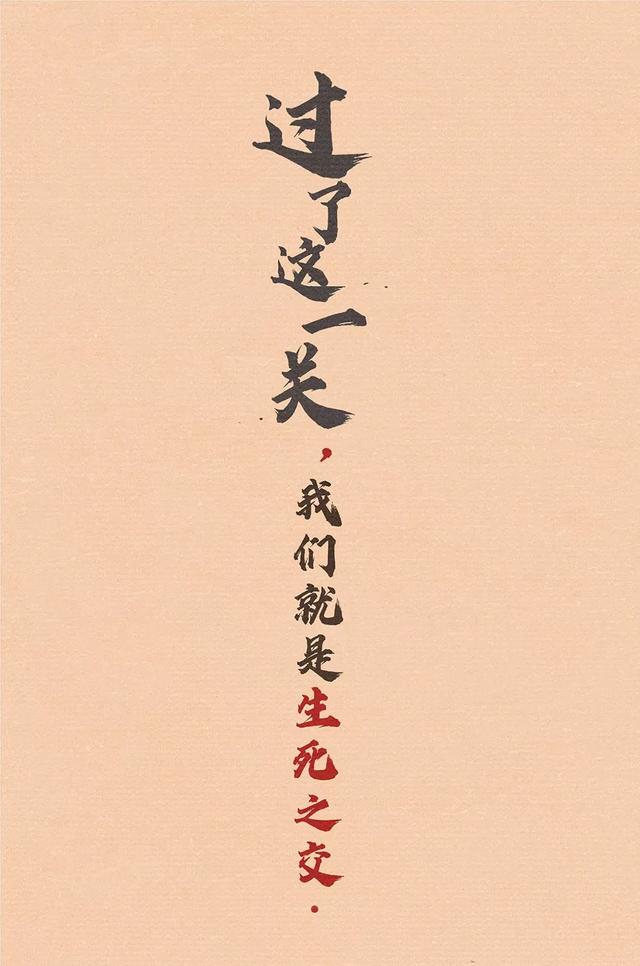 过了这一关，我们就是生死之交.